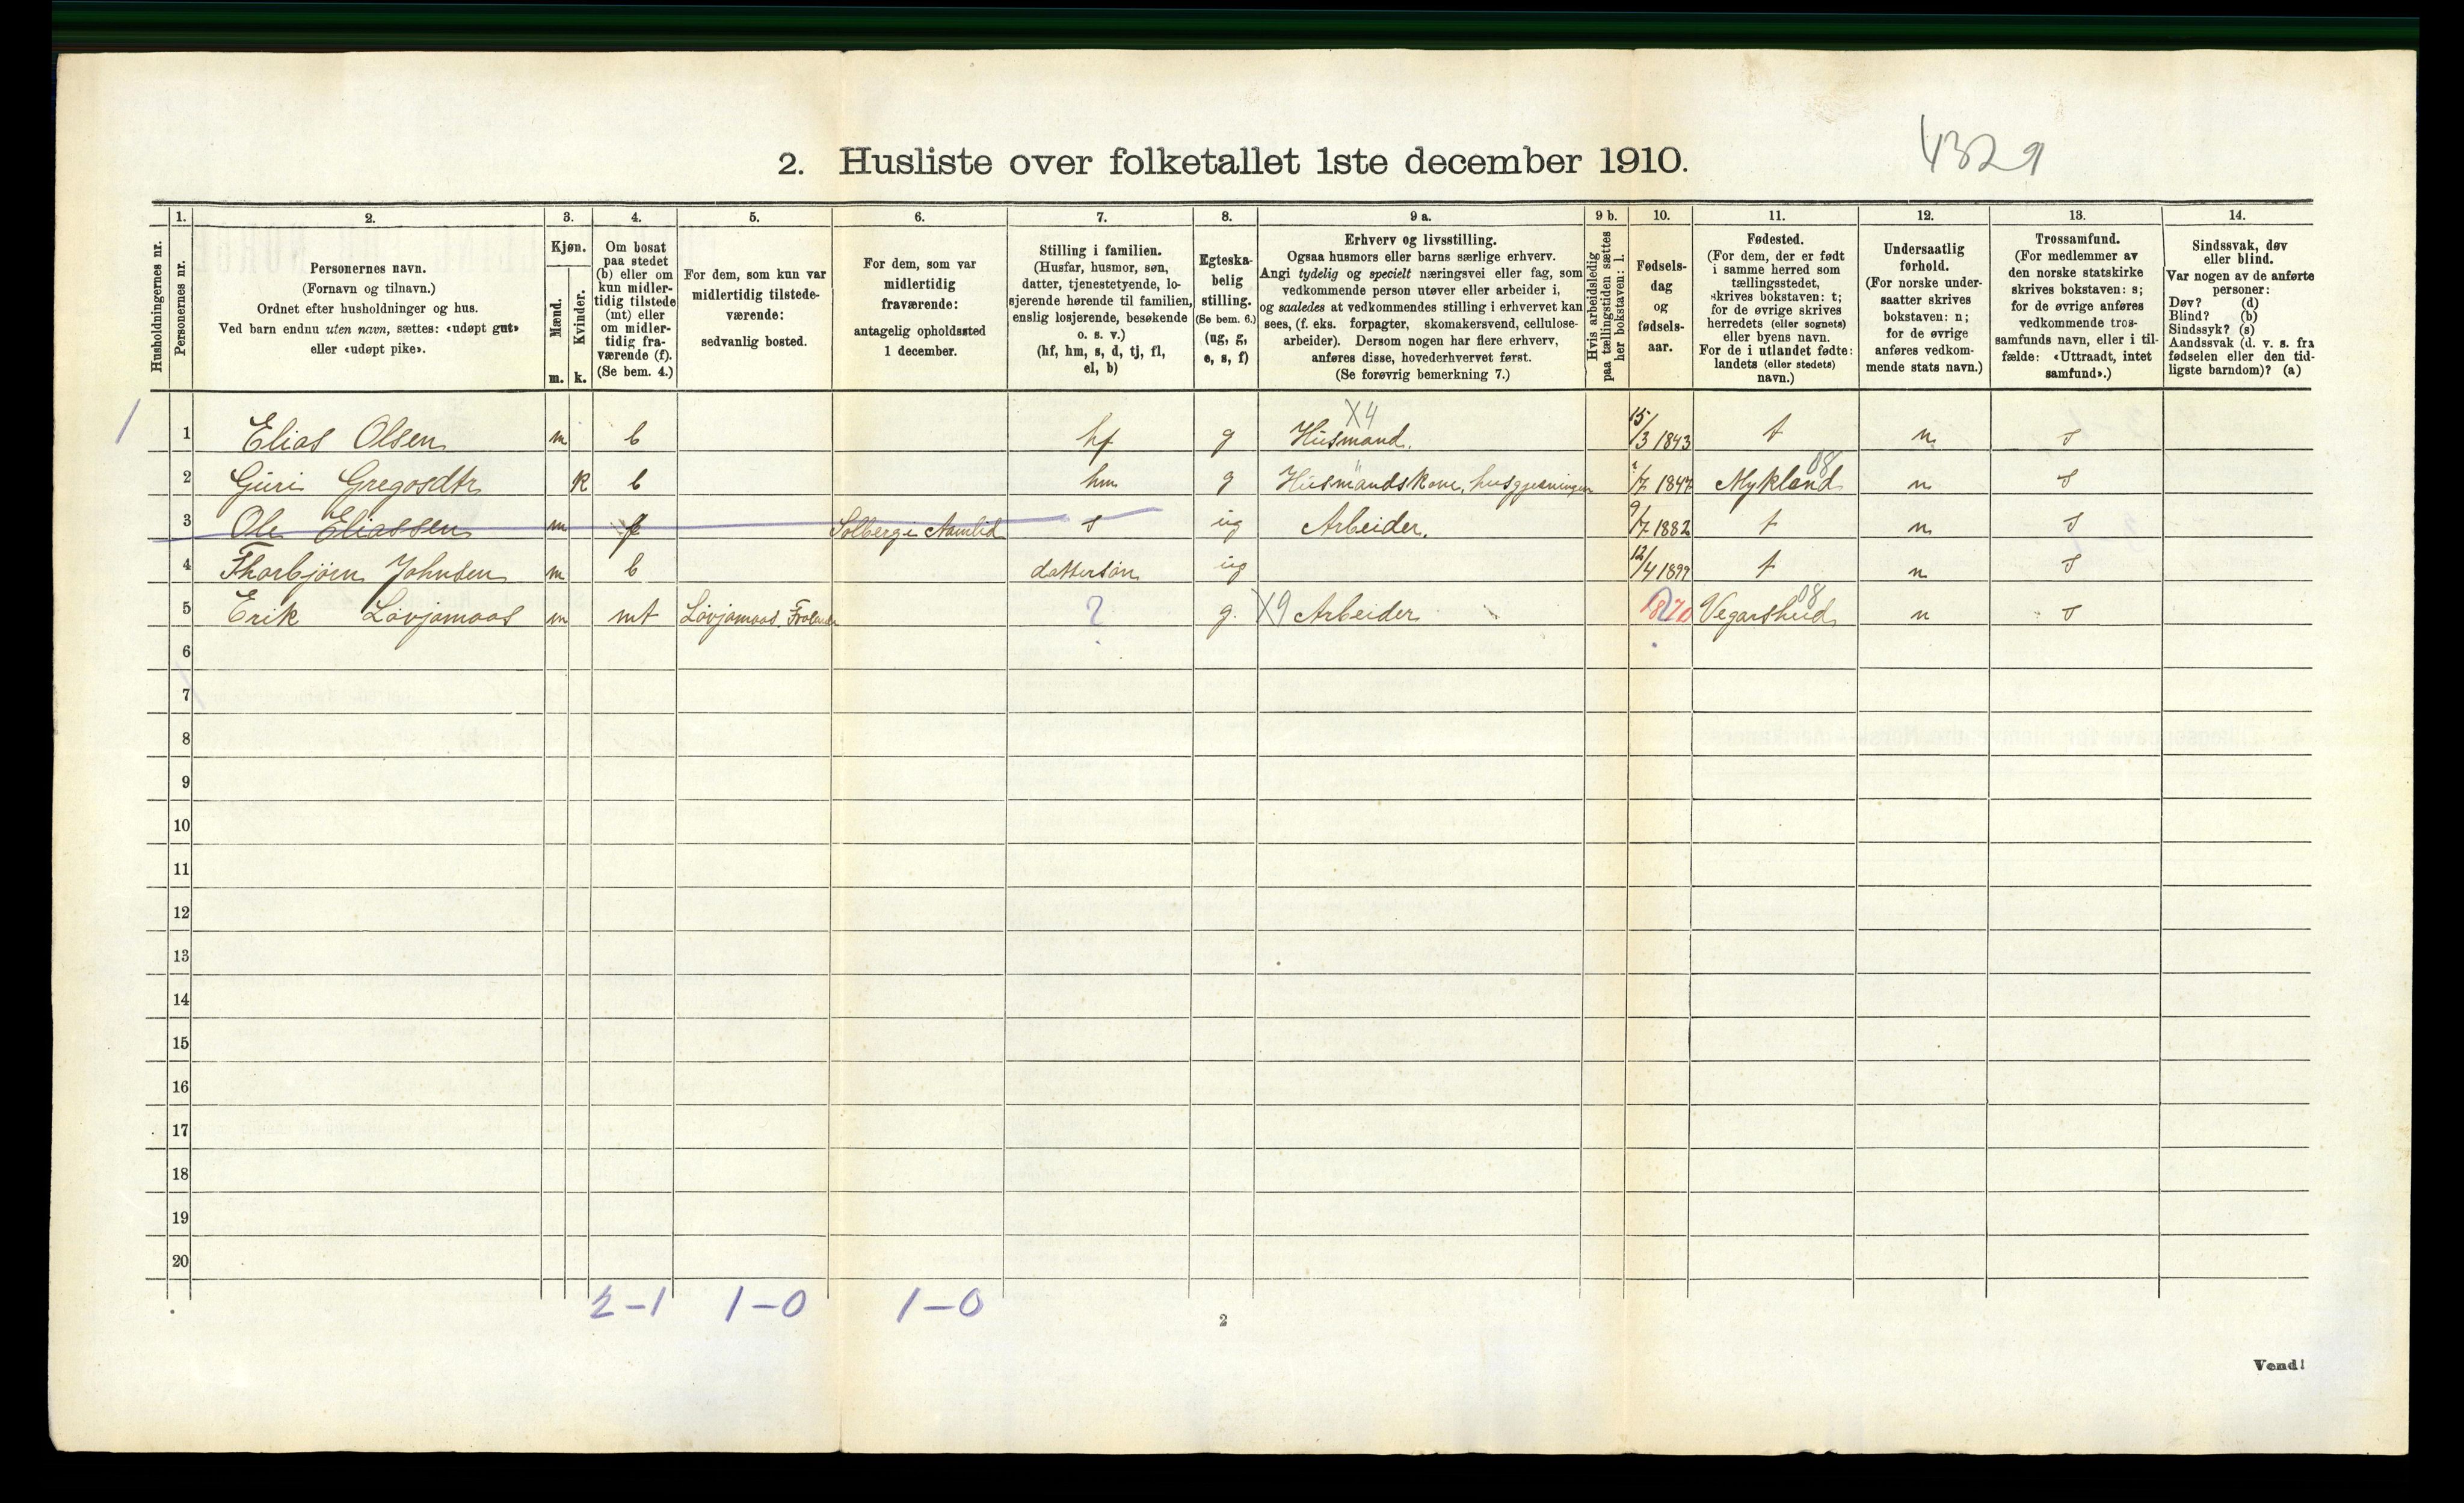 4329
2. Husliste over folketallet 1ste december 1910.
1. 2. 3. 4. 5. 6. 7. 8. 9 a. 9 b. 10. 11. 12. 13. 14.
Husholdningernes nr.
Personernes nr.
Personernes navn.
(Fornavn og tilnavn.)
Ordnet efter husholdninger og hus.
Ved barn endnu uten navn, sættes: «udøpt gut»
eller «udøpt pike».
Kjøn.
Mænd.
Kvinder.
m. k.
Om bosat
paa stedet
(b) eller om
kun midler-
tidig tilstede
(mt) eller
om midler-
tidig fra-
værende (f).
(Se bem. 4.)
For dem, som kun var
midlertidig tilstede-
værende:
sedvanlig bosted.
For dem, som var
midlertidig
fraværende:
antagelig opholdssted
1 december.
Stilling i familien.
(Husfar, husmor, søn,
datter, tjenestetyende, lo-
sjerende hørende til familien,
enslig losjerende, besøkende
o. s. v.)
(hf, hm, s, d, tj, fl,
el, b)
Egteska-
belig
stilling.
(Se bem. 6.)
(ug, g,
e, s, f)
Erhverv og livsstilling.
Ogsaa husmors eller barns særlige erhverv.
Angi tydelig og specielt næringsvei eller fag, som
vedkommende person utøver eller arbeider i,
og saaledes at vedkommendes stilling i erhvervet kan
sees, (f. eks. forpagter, skomakersvend, cellulose-
arbeider). Dersom nogen har flere erhverv,
anføres disse, hovederhvervet først.
(Se forøvrig bemerkning 7.)
Hvis arbeidsledig
paa tællingstiden sættes
her bokstaven: l.
Fødsels-
dag
og
fødsels-
aar.
Fødested.
(For dem, der er født
i samme herred som
tællingsstedet,
skrives bokstaven: t;
for de øvrige skrives
herredets (eller sognets)
eller byens navn.
For de i utlandet fødte:
landets (eller stedets)
navn.)
Undersaatlig
forhold.
(For norske under-
saatter skrives
bokstaven: n;
for de øvrige
anføres vedkom-
mende stats navn.)
Trossamfund.
(For medlemmer av
den norske statskirke
skrives bokstaven: s;
for de øvrige anføres
vedkommende tros-
samfunds navn, eller i til-
fælde: «Uttraadt, intet
samfund».)
Sindssvak, døv
eller blind.
Var nogen av de anførte
personer:
Døv? (d)
Blind? (b)
Sindssyk? (s)
Aandssvak (d. v. s. fra
fødselen eller den tid-
ligste barndom)? (a)
X4
1 1 Elias Olsen m b hf g Husmand. 15/3 1843 t n s
08
2 Guri Gregosdtr k b hm g Husmandskone, husgjerningen /7 1847 Mykland n s
3 Ole Eliassen m f Solberg i Aamlid s ug Arbeider. 9/7 1882 t n s
4 Thorbjørn Johnsen m b dattersøn ug 12/4 1899 t n s
08
5 Erik Løvjomaas m mt Løvjomaas, Froland ? g. X9 Arbeider 1870 Vegarsheid n s
6
7
8
9
10
11
12
13
14
15
16
17
18
19
20
2-1 1-0 1-0
2
Vend!